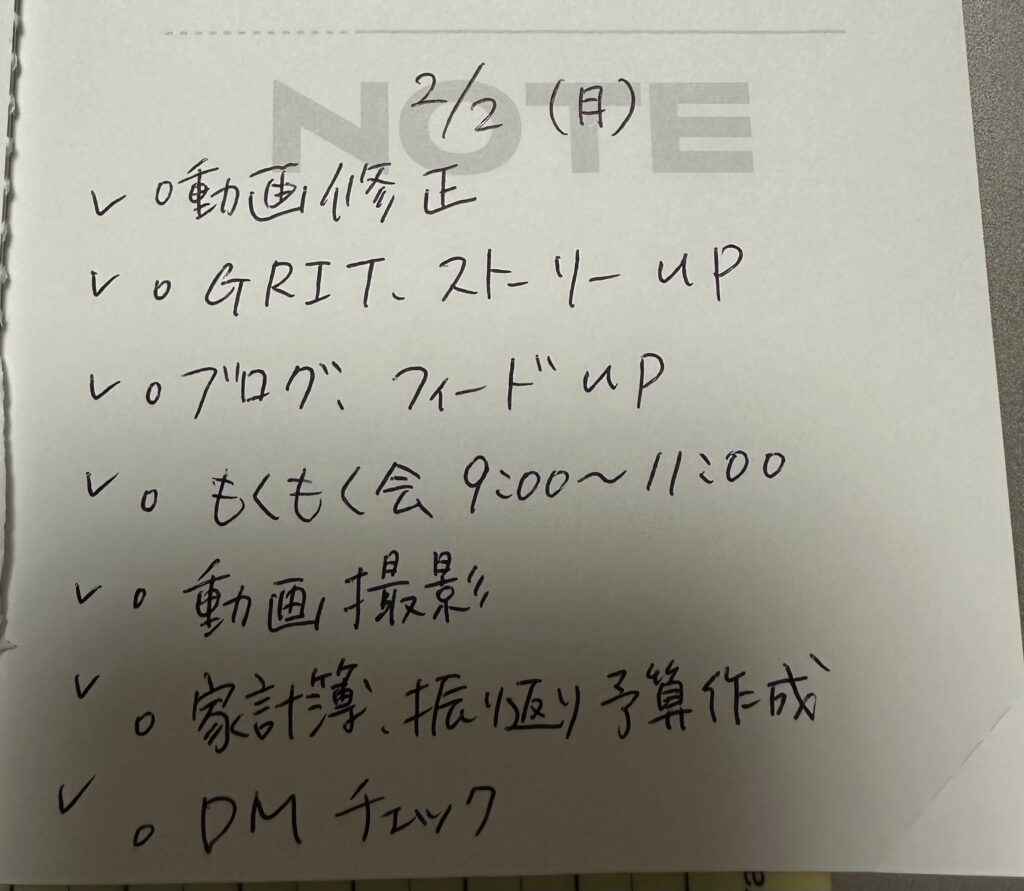 NOTE
2/2 (月)
✓ ○動画修正
✓ ○ GRIT、ストーリー UP
✓ ○ ブログ、フィード UP
✓ ○ もくもく会 9:00〜11:00
✓ ○ 動画撮影
✓ ○ 家計簿、振り返り予算作成
✓ ○ DM チェック